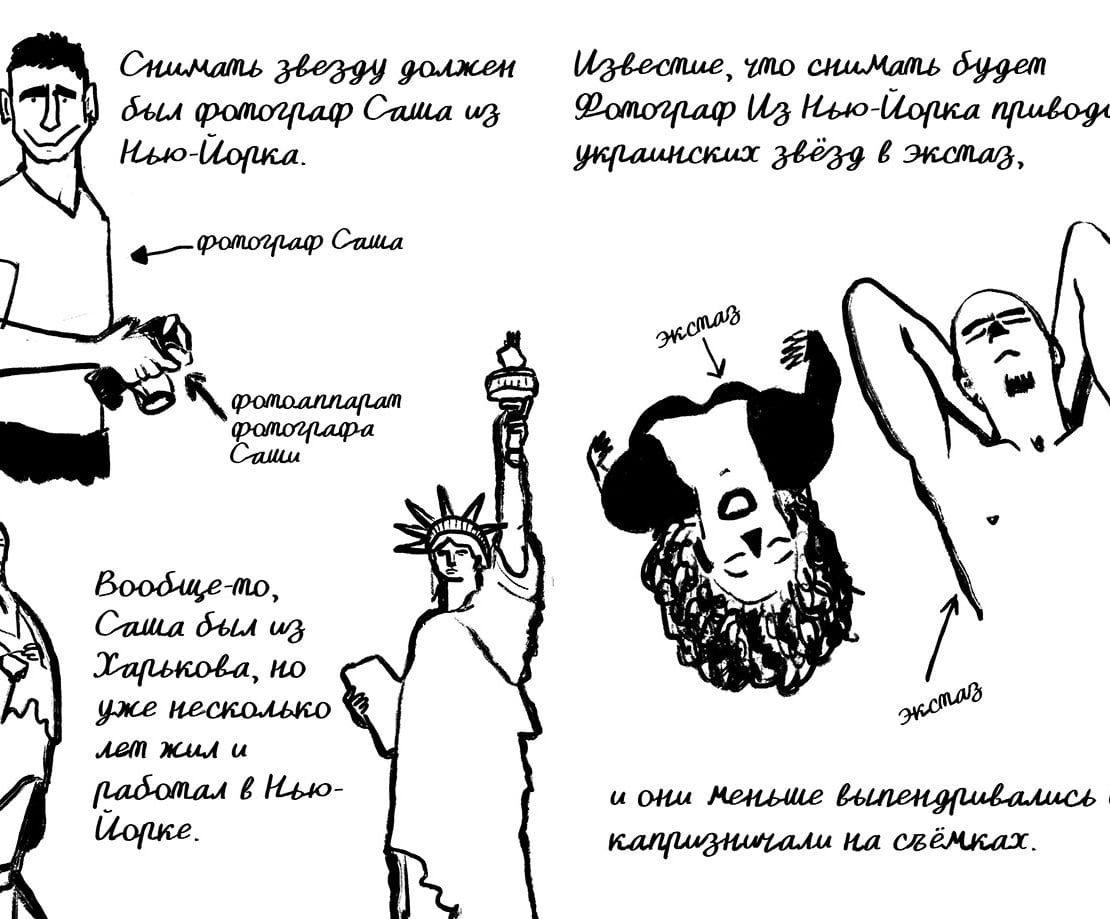 Снимать звезду должен
был фотограф Саша из
Нью-Йорка.
фотограф Саша
фотоаппарат
фотографа
Саши
Вообще-то,
Саша был из
Харькова, но
уже несколько
лет жил и
работал в Нью-
Йорке.
Известие, что снимать будет
Фотограф Из Нью-Йорка
украинских звёзд в экстаз,
экстаз
экстаз
и они меньше выпендривались
капризничали на съёмках.